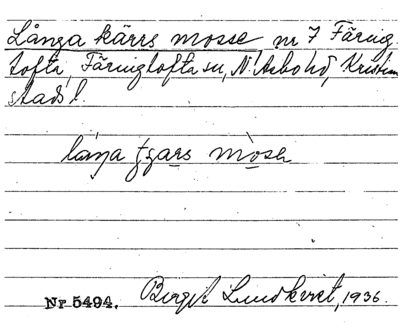 Långa kärrs mosse nr 7 Färing
tofta, Färingtofta sn, N. Åsbo hd, Kristian
stads l.
Nr 5494. Birgit Lundkvist, 1936.